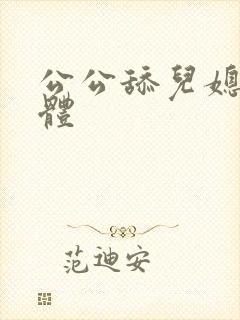 公公舔兒媳
體
范迪安